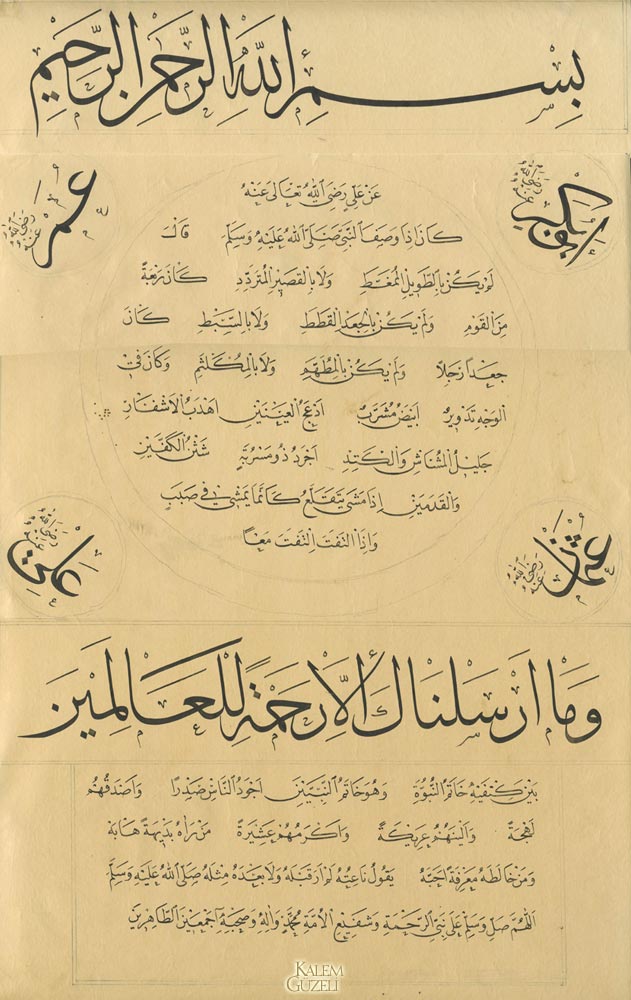 بِسْمِ اللَّهِ الرَّحْمَنِ الرَّحِيمِ
ابوبكر رضي الله عنه
عمر رضي الله عنه
عَنْ عَلِيٍّ رَضِيَ اللهُ تَعَالَى عَنْهُ
كَانَ اِذَا وَصَفَ النَّبِيَّ صَلَّى اللهُ عَلَيْهِ وَسَلَّمَ قَالَ
لَمْ يَكُنْ بِالطَّوِيلِ الْمُمَغَّطِ وَلَا بِالْقَصِيرِ الْمُتَرَدِّدِ كَانَ رَبْعَةً
مِنَ الْقَوْمِ وَلَمْ يَكُنْ بِالْجَعْدِ الْقَطَطِ وَلَا بِالسَّبِطِ كَانَ
جَعْدًا رَجِلًا وَلَمْ يَكُنْ بِالْمُطَهَّمِ وَلَا بِالْمُكَلْثَمِ وَكَانَ فِي
الْوَجْهِ تَدْوِيرٌ اَبْيَضُ مُشْرَبٌ اَدْعَجُ الْعَيْنَيْنِ اَهْدَبُ الْاَشْفَارِ
جَلِيلُ الْمُشَاشِ وَالْكَتَدِ اَجْرَدُ ذُو مَسْرُبَةٍ شَثْنُ الْكَفَّيْنِ
وَالْقَدَمَيْنِ اِذَا مَشَى يَتَقَلَّعُ كَاَنَّمَا يَمْشِي فِي صَبَبٍ
وَاِذَا الْتَفَتَ اِلْتَفَتَ مَعًا
عثمان رضي الله عنه
علي رضي الله عنه
وَمَا اَرْسَلْنَاكَ اِلَّا رَحْمَةً لِلْعَالَمِينَ
بَيْنَ كَتِفَيْهِ خَاتَمُ النُّبُوَّةِ وَهُوَ خَاتَمُ النَّبِيِّينَ اَجْوَدُ النَّاسِ صَدْرًا وَاَصْدَقُهُمْ
لَهْجَةً وَاَلْيَنُهُمْ عَرِيكَةً وَاَكْرَمُهُمْ عَشِيرَةً مَنْ رَاٰهُ بَدِيهَةً هَابَهُ
وَمَنْ خَالَطَهُ مَعْرِفَةً اَحَبَّهُ يَقُولُ نَاعِتُهُ لَمْ اَرَ قَبْلَهُ وَلَا بَعْدَهُ مِثْلَهُ صَلَّى اللهُ عَلَيْهِ وَسَلَّمَ
اَللّٰهُمَّ صَلِّ وَسَلِّمْ عَلَى نَبِيِّ الرَّحْمَةِ وَشَفِيعِ الْاُمَّةِ مُحَمَّدٍ وَاٰلِهِ وَصَحْبِهِ اَجْمَعِينَ الطَّاهِرِينَ
KALEM GÜZELİ